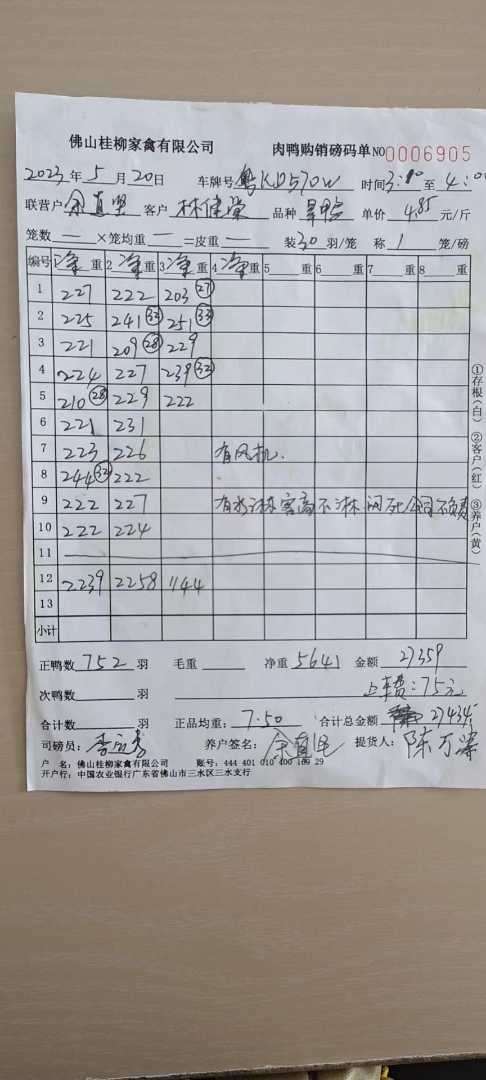 佛山桂柳家禽有限公司 肉鸭购销磅码单 NO 0006905
2023年5月20日 车牌号 粤KD570W 时间 3:10 至 4:00
联营户 客户 品种 单价 4.85 元/斤
笼数 — ×笼均重 — =皮重 — 装30羽/笼 称1笼/磅
编号 净重 2净重 3净重 4净重 5 重 6 重 7 重 8 重
1 227 222 203㉗
2 225 241㉜ 251㉝
3 221 209㉘ 229
4 224 227 239㉜
5 210㉘ 229 222
6 221 231
7 223 226 有风机.
8 244㉜ 222
9 222 227 有水淋 客商不淋 闷死公司不负责
10 222 224
11
12 2239 2258 1144
13
小计
①存根(白) ②客户(红) ③养户(黄)
正鸭数 752 羽 毛重 净重 5641 金额 27359
次鸭数 羽 上车费:75元
合计数 羽 正品均重: 7.50 合计总金额 27434
司磅员: 养户签名: 提货人:
户 名: 佛山桂柳家禽有限公司 账号: 444 401 010 400 169 29
开户行: 中国农业银行广东省佛山市三水区三水支行